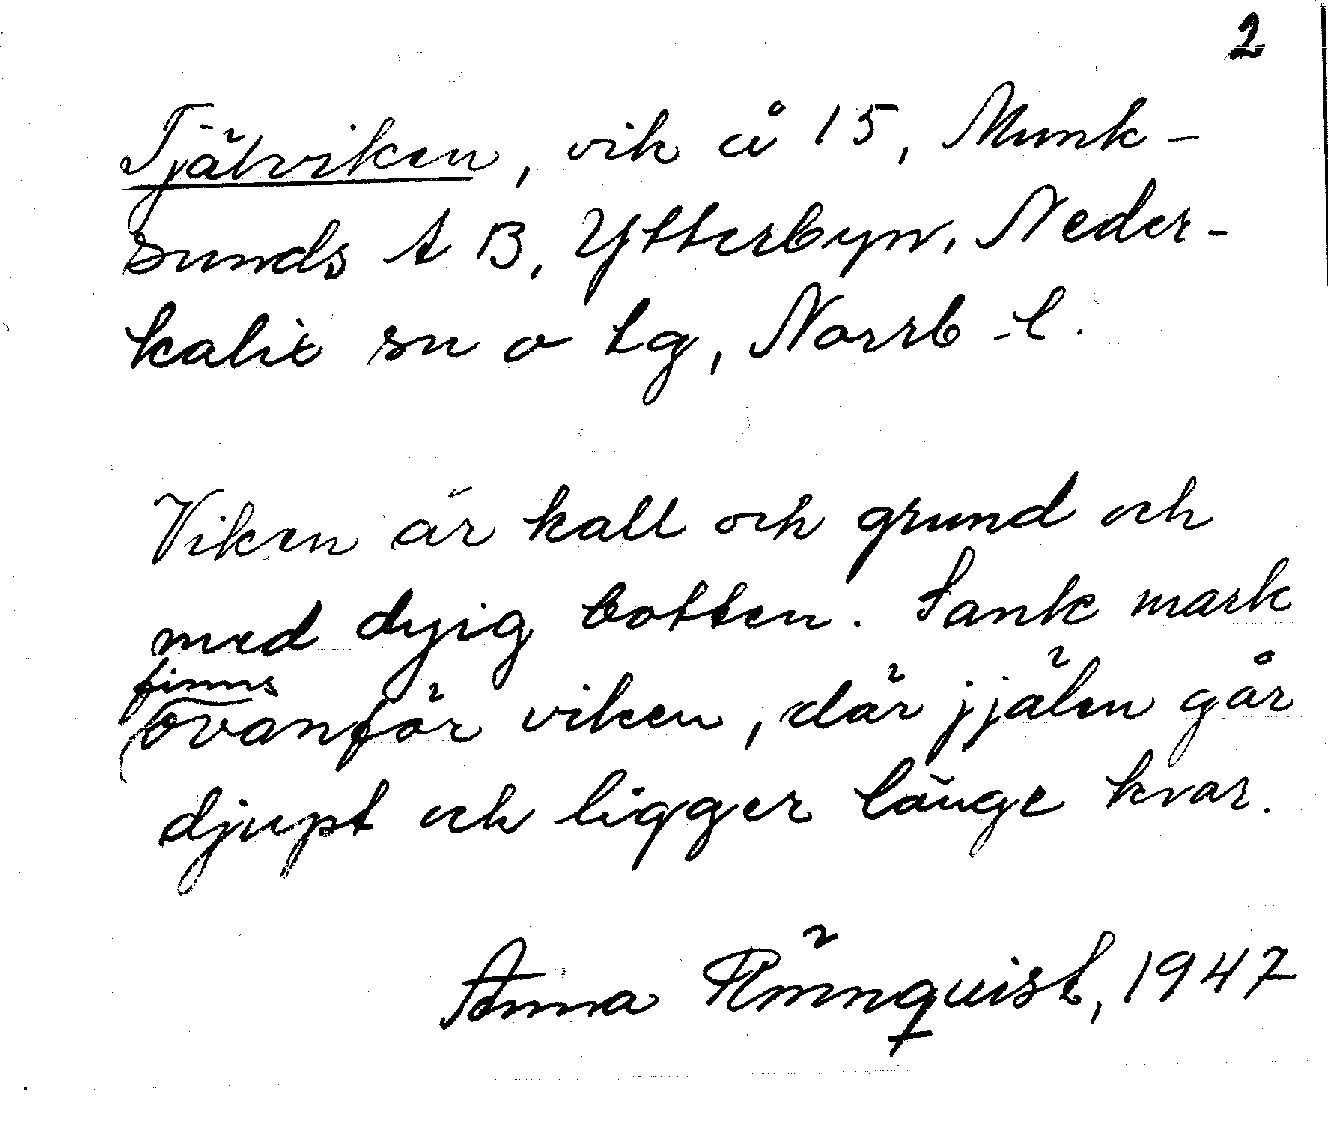 2
Tjälviken, vik å 15, Munk-
sunds A B, Ytterbyn, Neder-
kalix sn o tg, Norrb l.
Viken är kall och grund och
med dyig botten. Sank mark
finns
ovanför viken, där jjälen går
djupt och ligger länge kvar.
Anna Rönnquist, 1947